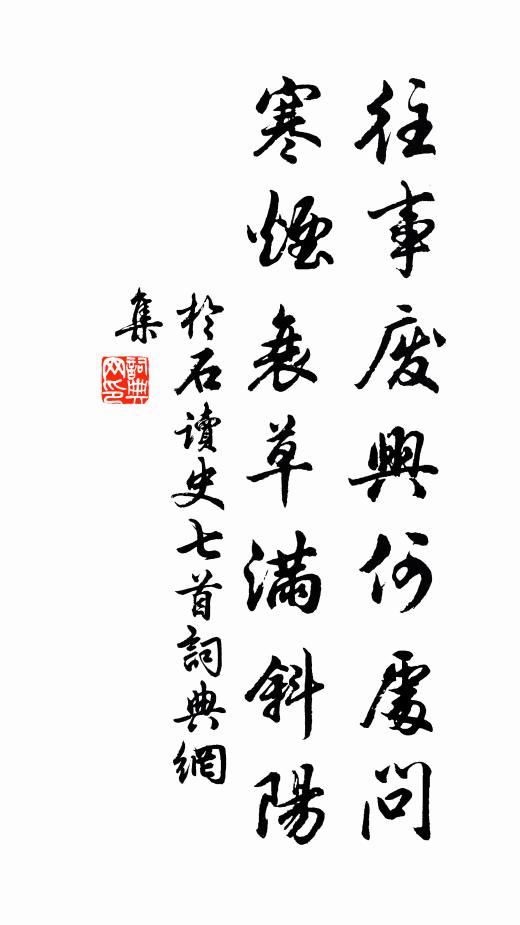 往事廢興何處問
寒煙衰草滿斜陽
於石讀史七首詞典網
集
詞典
网印